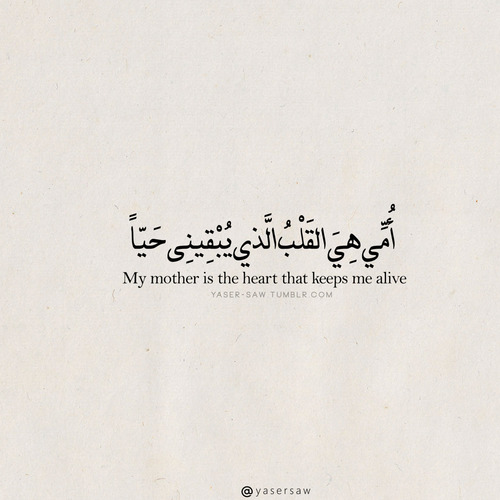 أُمِّي هِيَ القَلْبُ الَّذي يُبْقِينِى حَيّاً
My mother is the heart that keeps me alive
YASER-SAW.TUMBLR.COM
@yasersaw